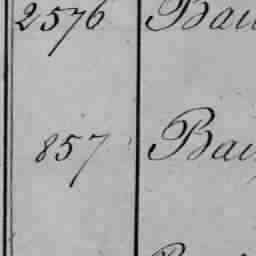 2576 Bau
857 Bau